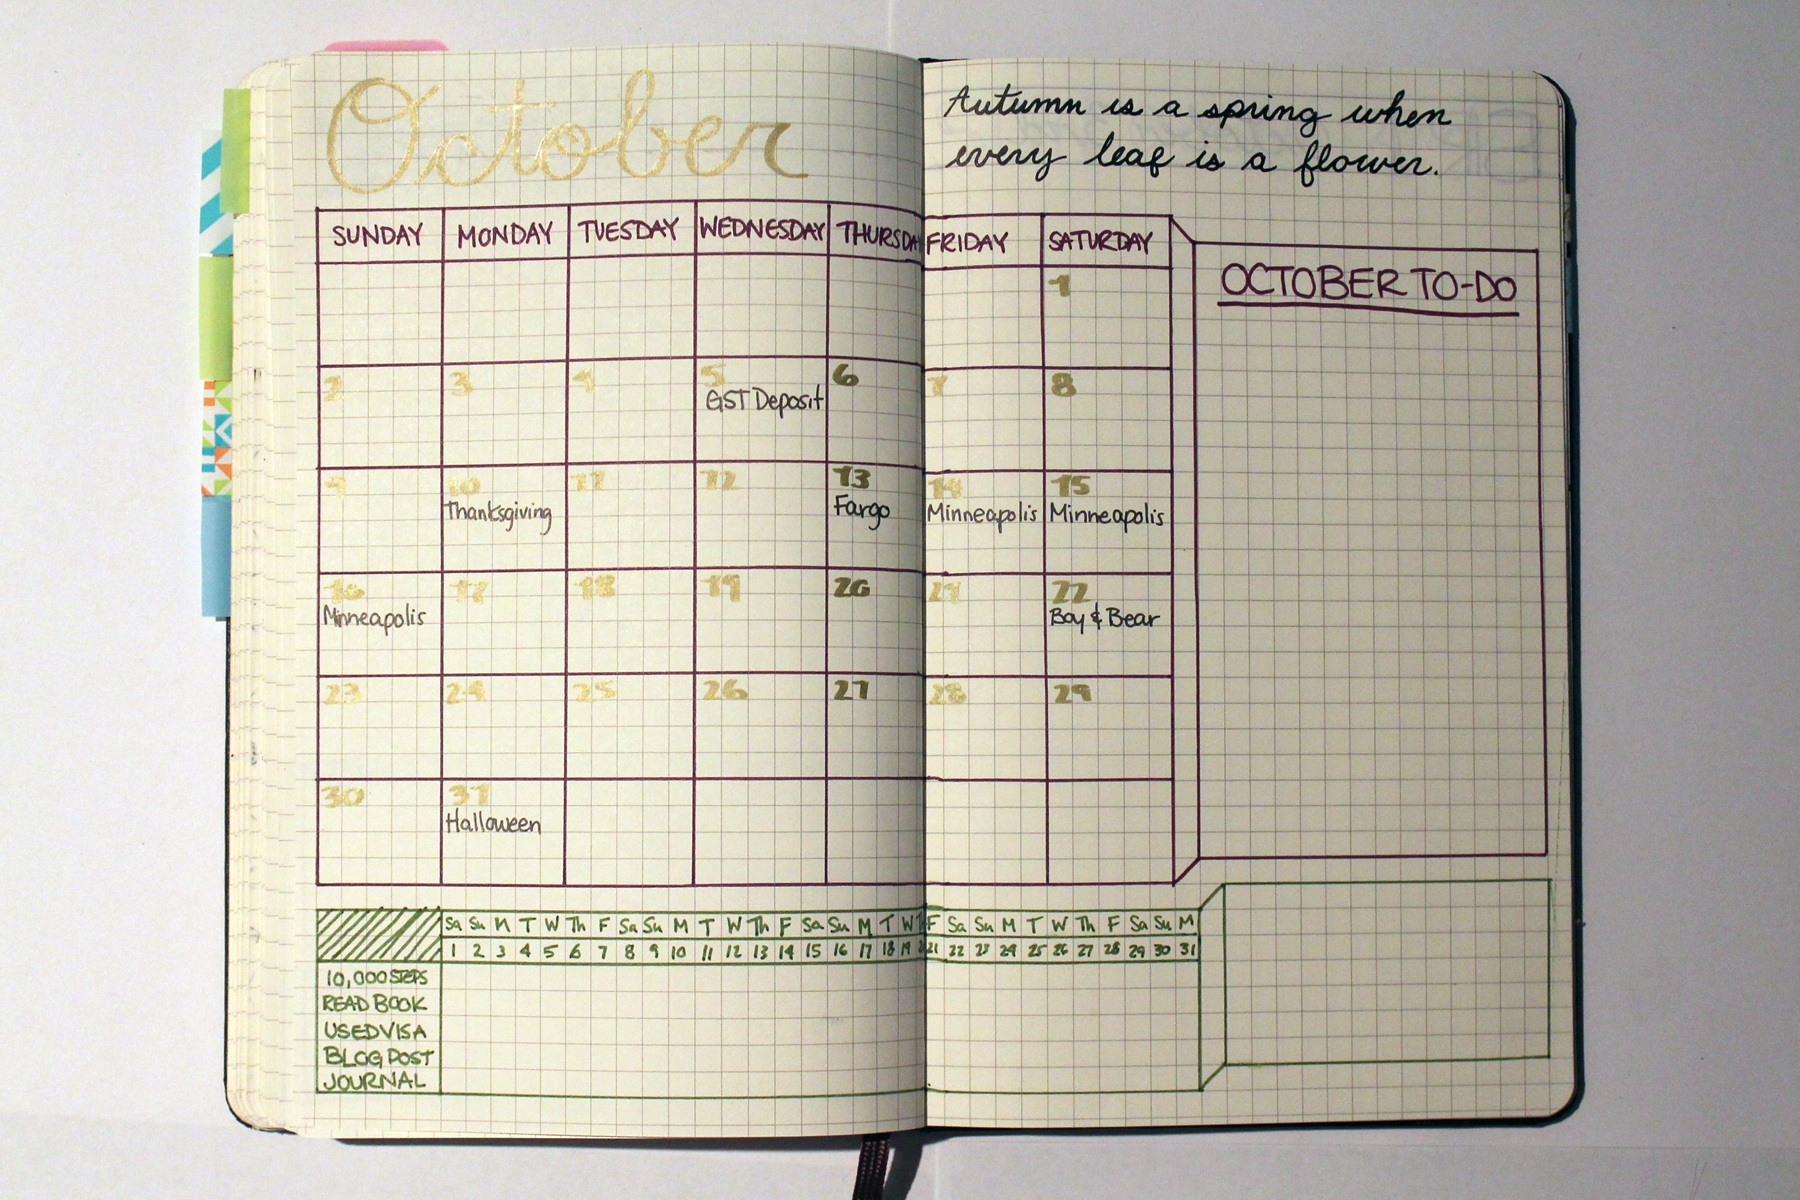 October
Autumn is a spring when
every leaf is a flower.
SUNDAY MONDAY TUESDAY WEDNESDAY THURSDAY FRIDAY SATURDAY
OCTOBER TO-DO
1
2 3 4 5 6 7 8
GST Deposit
9 10 11 12 13 14 15
Thanksgiving Fargo Minneapolis Minneapolis
16 17 18 19 20 21 22
Minneapolis Boy & Bear
23 24 25 26 27 28 29
30 31
Halloween
Sa Su M T W Th F Sa Su M T W Th F Sa Su M T W T F Sa Su M T W Th F Sa Su M
1 2 3 4 5 6 7 8 9 10 11 12 13 14 15 16 17 18 19 2 21 22 23 24 25 26 27 28 29 30 31
10,000 STEPS
READ BOOK
USED VISA
BLOG POST
JOURNAL